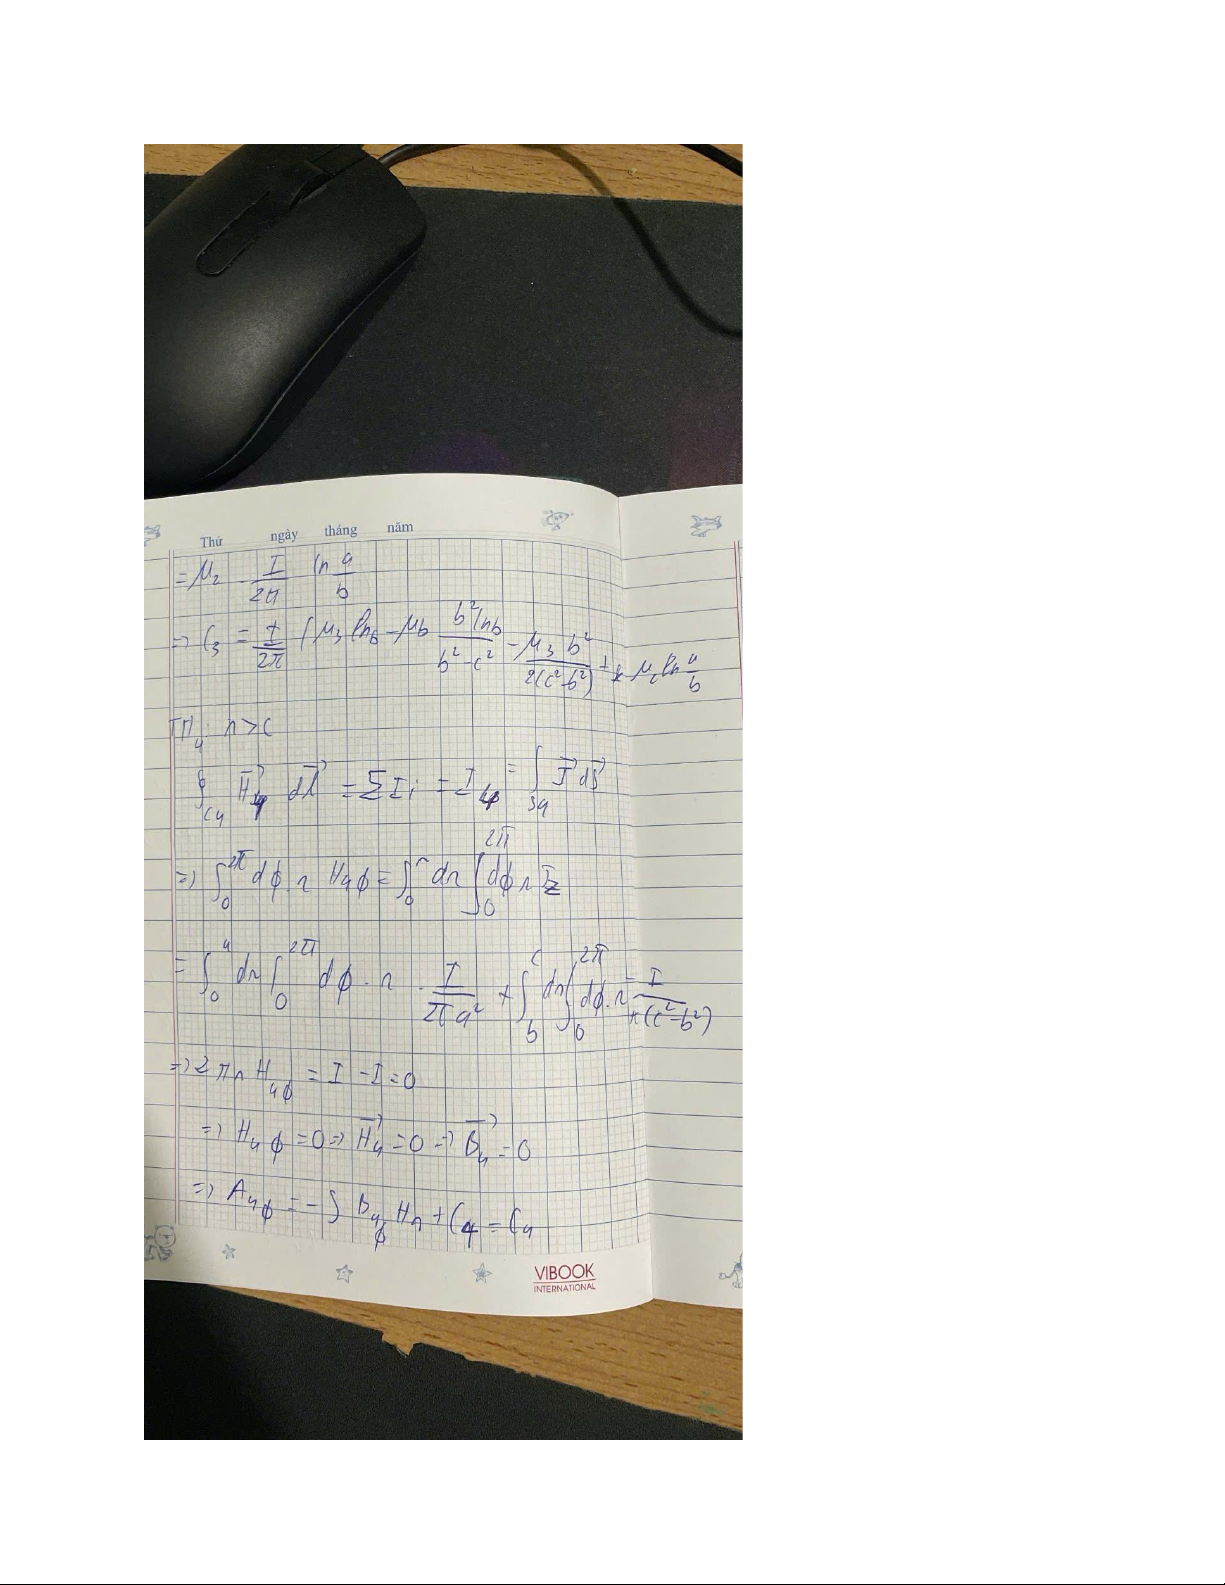 Thứ ngày tháng năm
= μ₂ . I/2π ln a/b
=> C₃ = I/2π (μ₃ lnb - μb b² lnb/b² - c² - μ₃ b²/2(c² - b²) + μ₂ ln a/b
TH₄: r > c
∮c₄ H₄ dl = ΣIi = I₄ = ∫S₄ J dS
=> ∫₀^2π dϕ . r H₄ϕ = ∫₀^r dr ∫₀^2π dϕ r Jz
= ∫₀^a dr ∫₀^2π dϕ . r . I/2πa² + ∫b^c dr ∫₀^2π dϕ . r - I/π(c² - b²)
=> 2πr H₄ϕ = I - I = 0
=> H₄ϕ = 0 => H₄ = 0 => B₄ = 0
=> A₄ϕ = - ∫ B₄ϕ Hr + C₄ = C₄
VIBOOK
INTERNATIONAL